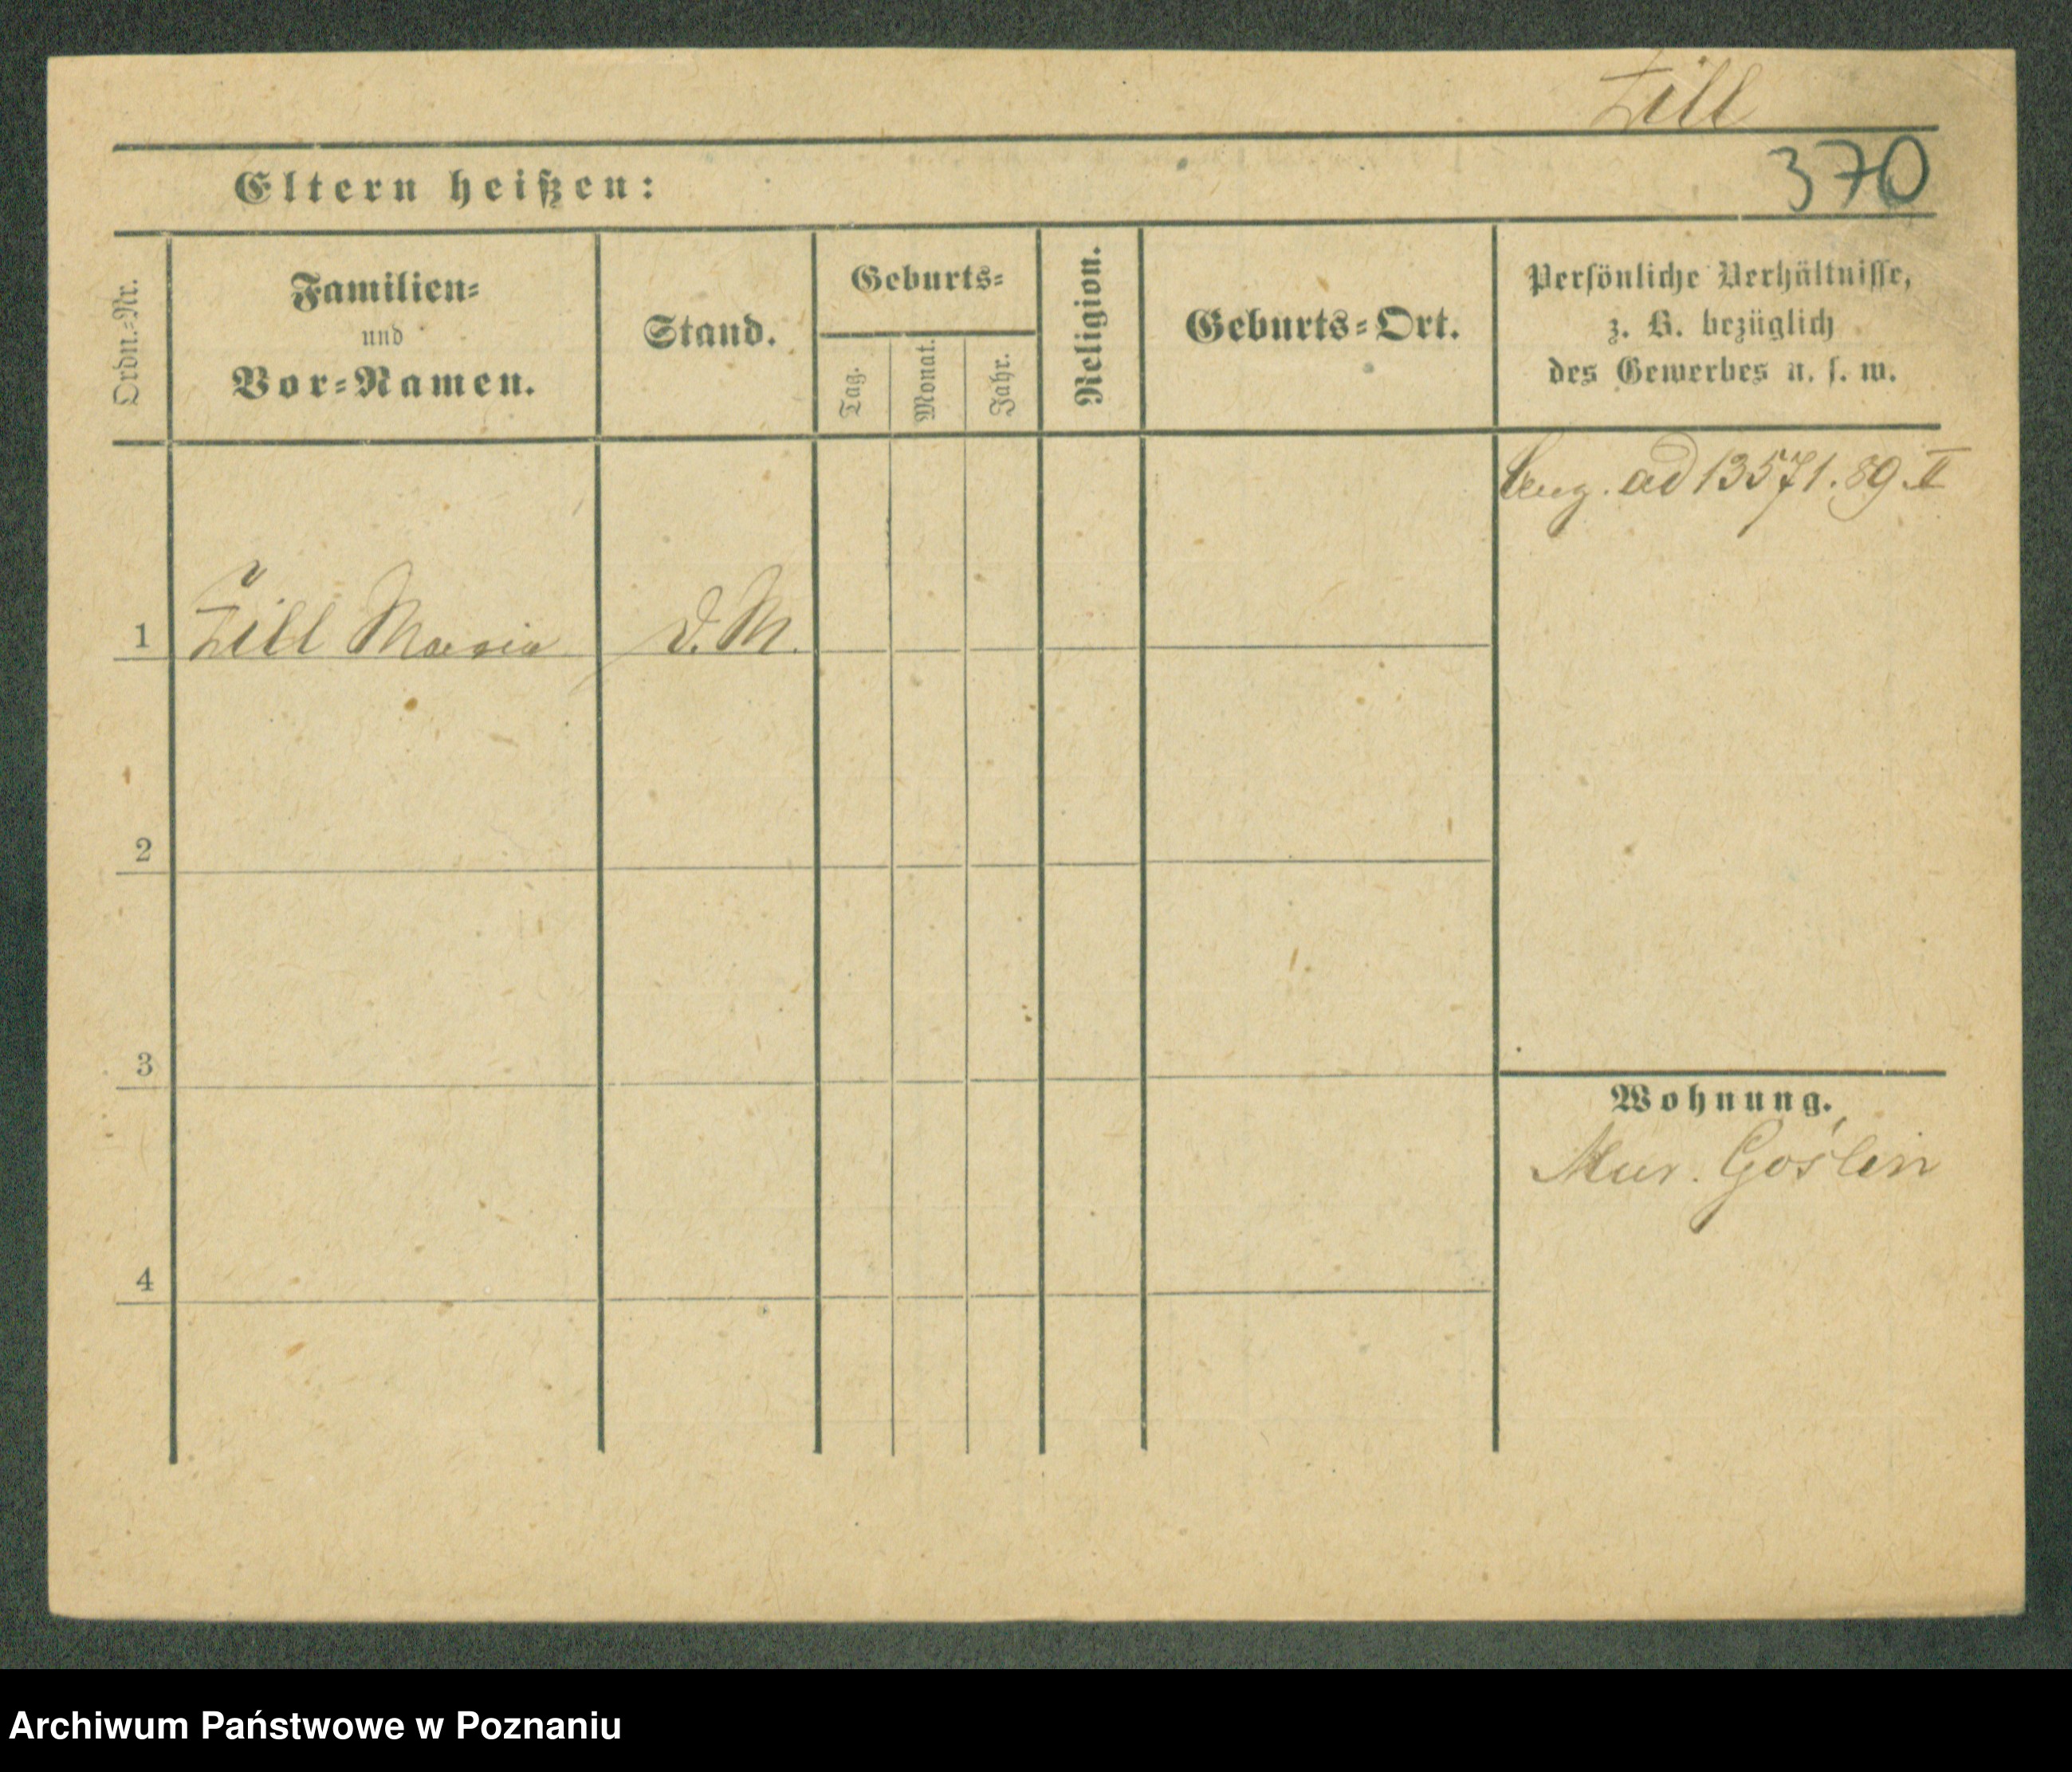 Zill
370
Eltern heißen:
Ordn.=Nr.
Familien=
und
Vor=Namen.
Stand.
Geburts=
Tag.
Monat.
Jahr.
Religion.
Geburts=Ort.
Persönliche Verhältnisse,
z. B. bezüglich
des Gewerbes u. s. w.
ad 13571.89.II
1 Zill Maria D.M.
2
3
Wohnung.
Mur. Goślin
4
Archiwum Państwowe w Poznaniu